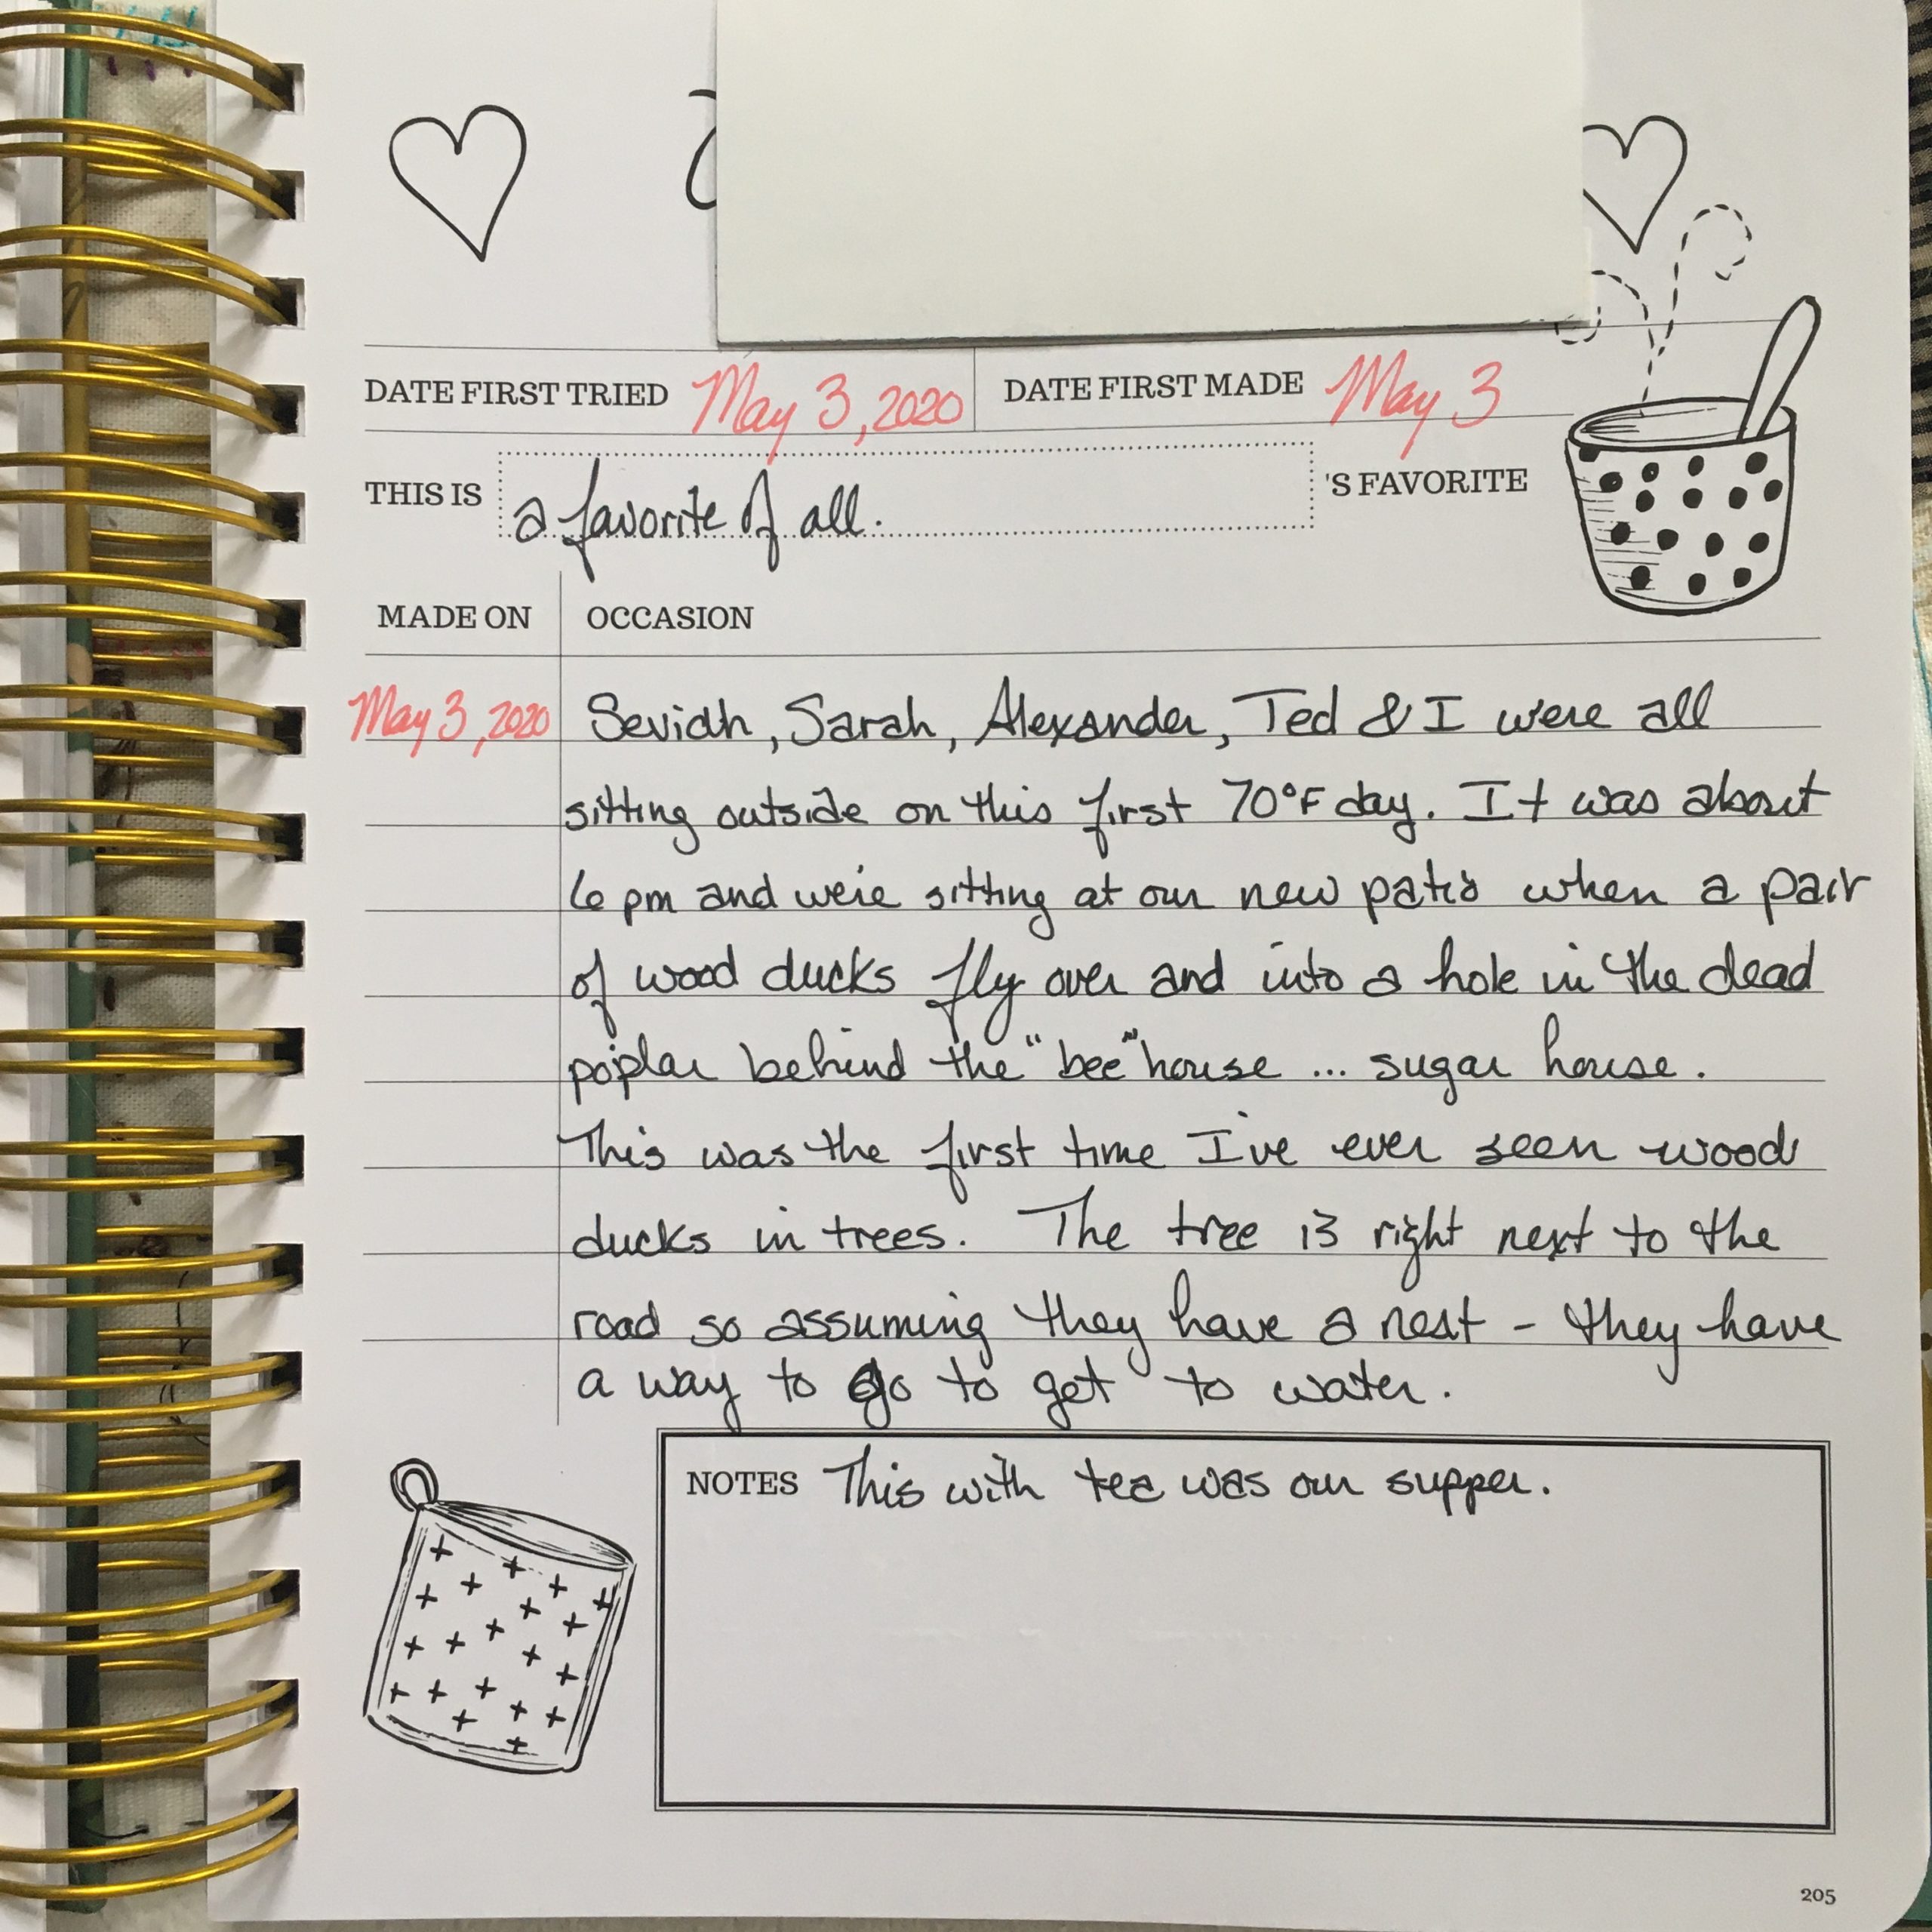 DATE FIRST TRIED May 3, 2020 DATE FIRST MADE May 3
THIS IS a favorite of all. 'S FAVORITE
MADE ON OCCASION
May 3, 2020 Seviah, Sarah, Alexander, Ted & I were all
sitting outside on this first 70°F day. It was about
6 pm and were sitting at our new patio when a pair
of wood ducks fly over and into a hole in the dead
poplar behind the "bee" house ... sugar house.
This was the first time I've ever seen wood
ducks in trees. The tree is right next to the
road so assuming they have a nest - they have
a way to go to get to water.
NOTES This with tea was our supper.
205